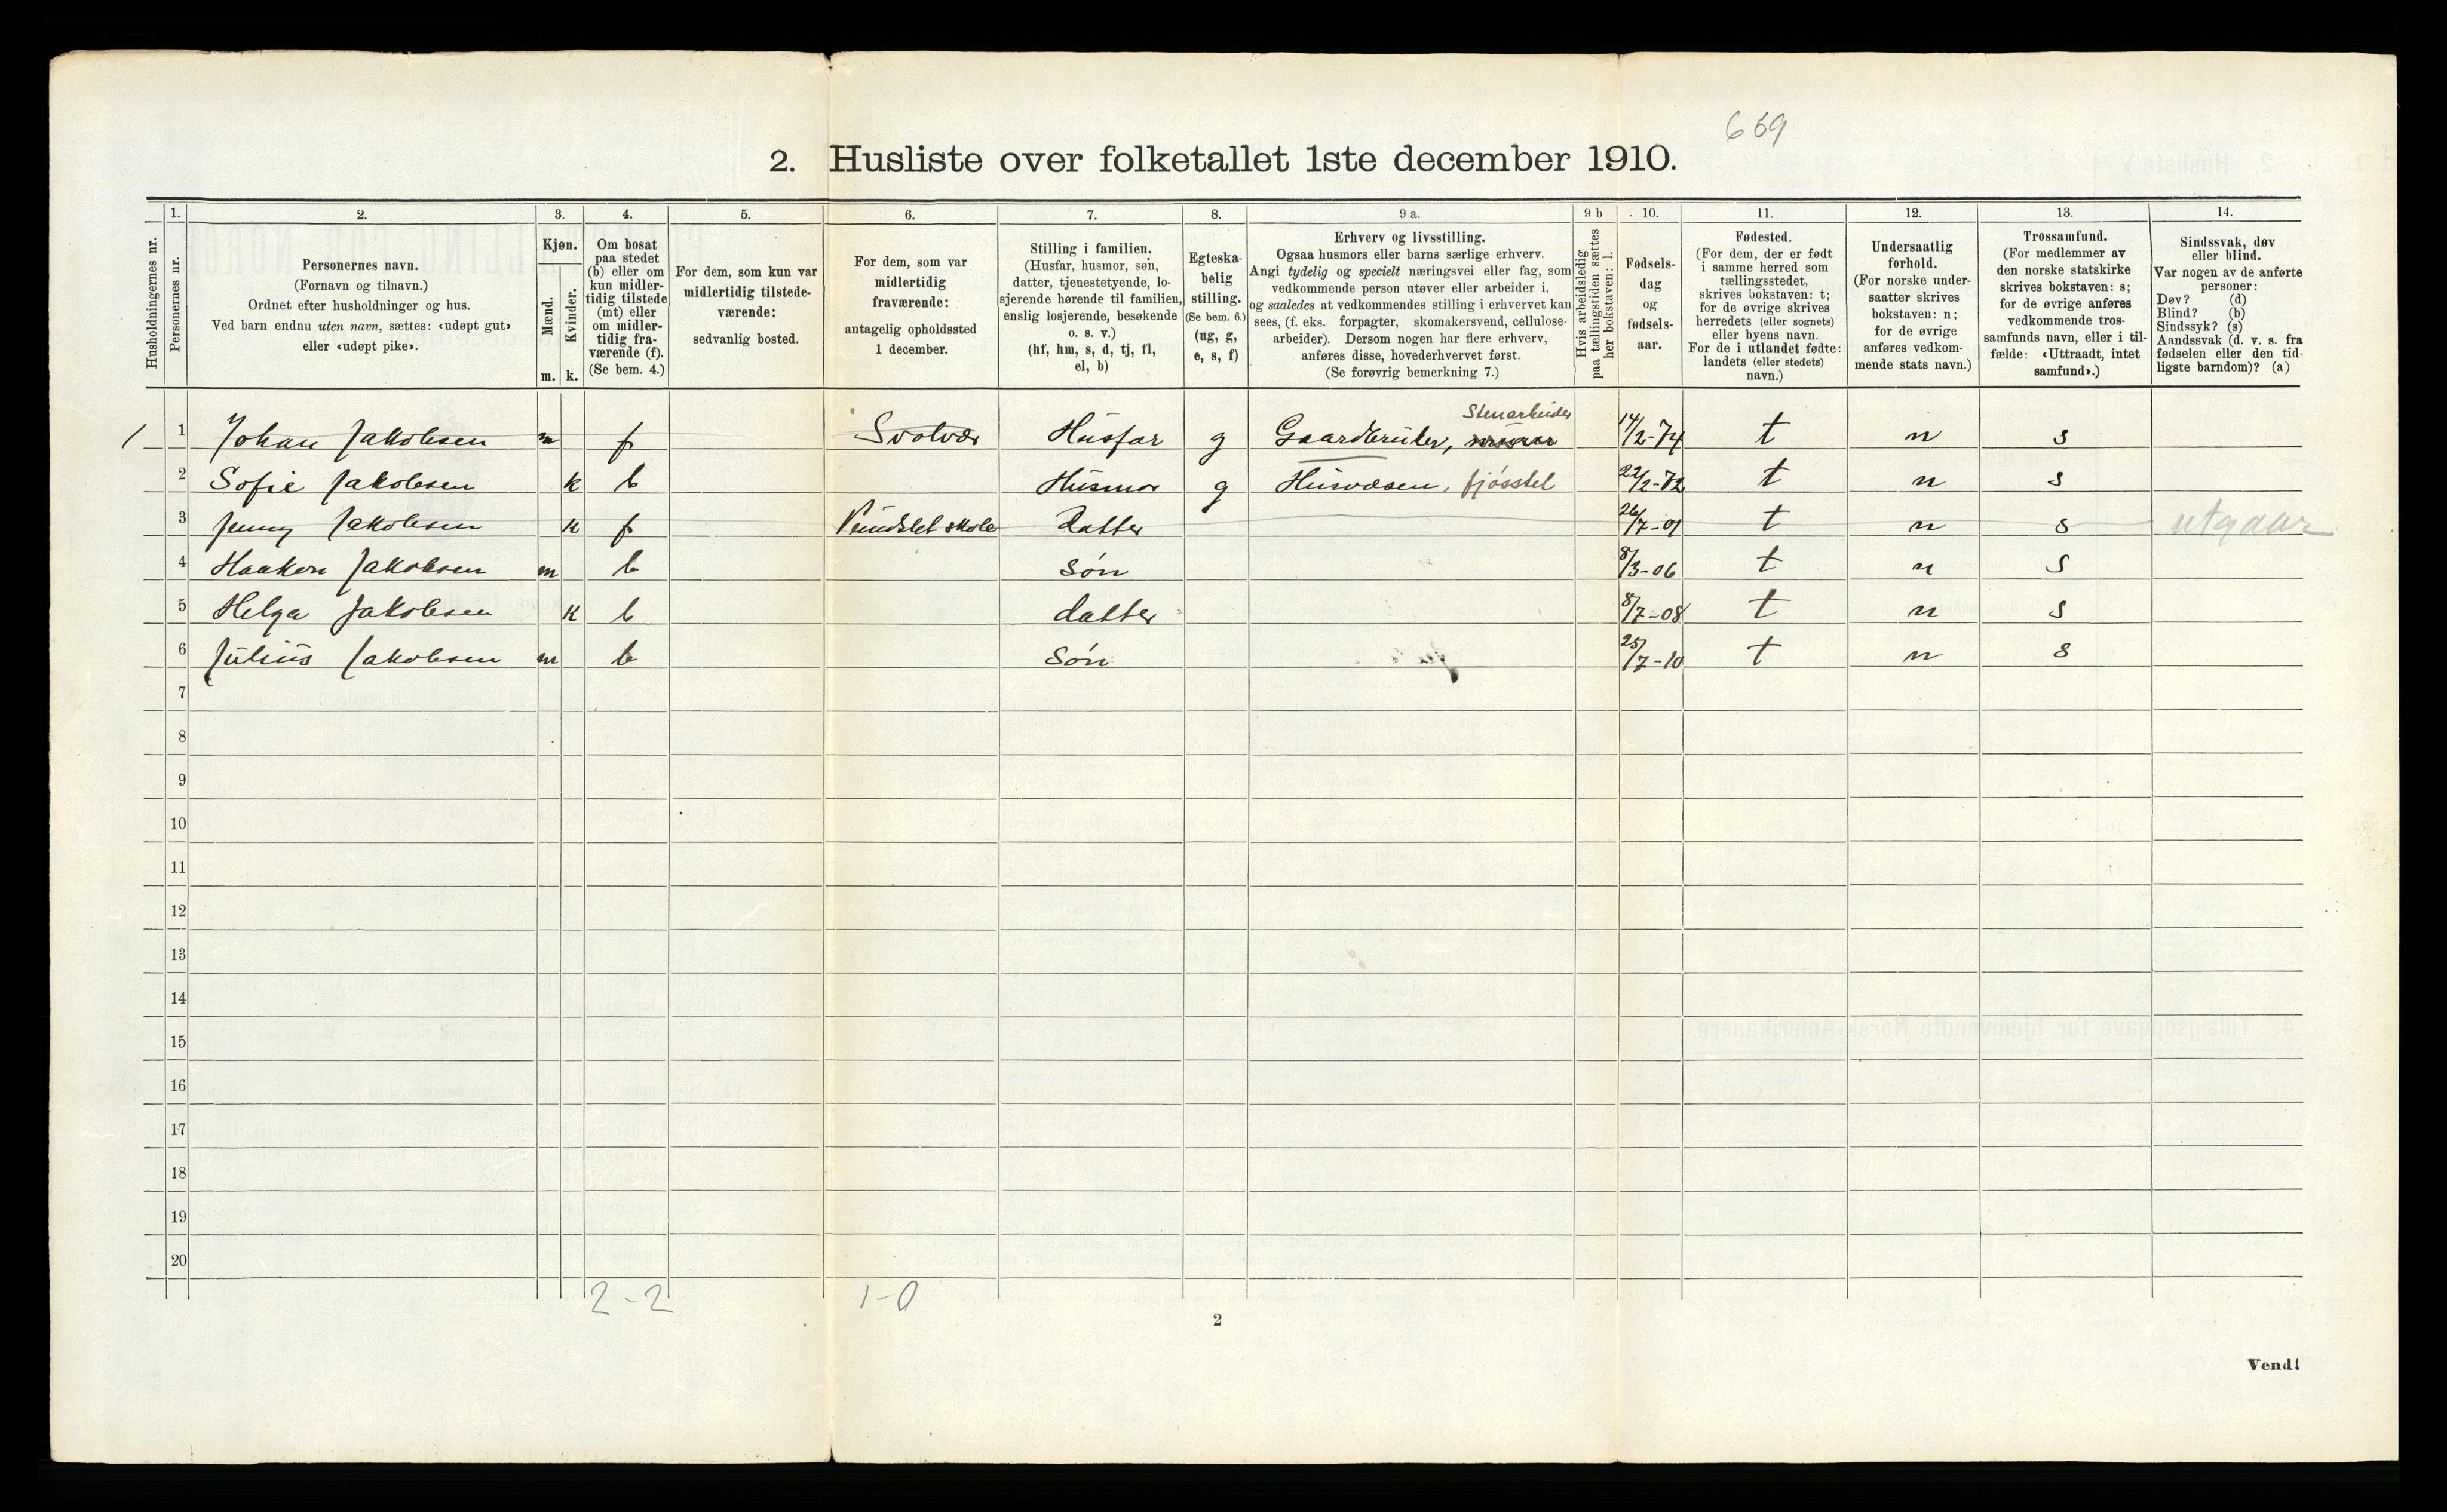 659
2. Husliste over folketallet 1ste december 1910.
Husholdningernes nr.
1.
Personernes nr.
2.
Personernes navn.
(Fornavn og tilnavn.)
Ordnet efter husholdninger og hus.
Ved barn endnu uten navn, sættes: «udøpt gut»
eller «udøpt pike».
3.
Kjøn.
Mænd.
Kvinder.
m. k.
4.
Om bosat
paa stedet
(b) eller om
kun midler-
tidig tilstede
(mt) eller
om midler-
tidig fra-
værende (f).
(Se bem. 4.)
5.
For dem, som kun var
midlertidig tilstede-
værende:
sedvanlig bosted.
6.
For dem, som var
midlertidig
fraværende:
antagelig opholdssted
1 december.
7.
Stilling i familien.
(Husfar, husmor, søn,
datter, tjenestetyende, lo-
sjerende hørende til familien,
enslig losjerende, besøkende
o. s. v.)
(hf, hm, s, d, tj, fl,
el, b)
8.
Egteska-
belig
stilling.
(Se bem. 6.)
(ug, g,
e, s, f)
9 a.
Erhverv og livsstilling.
Ogsaa husmors eller barns særlige erhverv.
Angi tydelig og specielt næringsvei eller fag, som
vedkommende person utøver eller arbeider i,
og saaledes at vedkommendes stilling i erhvervet kan
sees, (f. eks. forpagter, skomakersvend, cellulose-
arbeider). Dersom nogen har flere erhverv,
anføres disse, hovederhvervet først.
(Se forøvrig bemerkning 7.)
9 b
Hvis arbeidsledig
paa tællingstiden sættes
her bokstaven: l.
10.
Fødsels-
dag
og
fødsels-
aar.
11.
Fødested.
(For dem, der er født
i samme herred som
tællingsstedet,
skrives bokstaven: t;
for de øvrige skrives
herredets (eller sognets)
eller byens navn.
For de i utlandet fødte:
landets (eller stedets)
navn.)
12.
Undersaatlig
forhold.
(For norske under-
saatter skrives
bokstaven: n;
for de øvrige
anføres vedkom-
mende stats navn.)
13.
Trossamfund.
(For medlemmer av
den norske statskirke
skrives bokstaven: s;
for de øvrige anføres
vedkommende tros-
samfunds navn, eller i til-
fælde: «Uttraadt, intet
samfund».)
14.
Sindssvak, døv
eller blind.
Var nogen av de anførte
personer:
Døv? (d)
Blind? (b)
Sindssyk? (s)
Aandssvak (d. v. s. fra
fødselen eller den tid-
ligste barndom)? (a)
1 1 Johan Jakobsen m f Svolvær Husfar g Gaardbruker, Stenarbeider 14/2-74 t n s
2 Sofie Jakobsen k b Husmor g Husvæsen, fjøsstel 22/2-72 t n s
3 Jenny Jakobsen k f skole datter 26/7-01 t n s utgaar
4 Haakon Jakobsen m b Søn 8/3-06 t n s
5 Helga Jakobsen k b datter 8/7-08 t n s
6 Julius Jakobsen m b Søn 25/7-10 t n s
7
8
9
10
11
12
13
14
15
16
17
18
19
20
2-2 1-0
2
Vend!